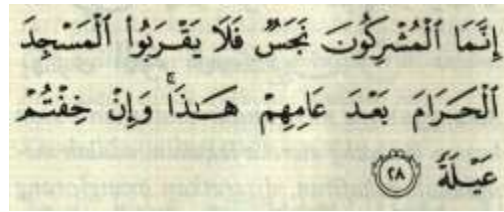 إِنَّمَا الْمُشْرِكُونَ نَجَسٌ فَلَا يَقْرَبُوا الْمَسْجِدَ
الْحَرَامَ بَعْدَ عَامِهِمْ هَـٰذَا ۚ وَإِنْ خِفْتُمْ
عَيْلَةً ٢٨